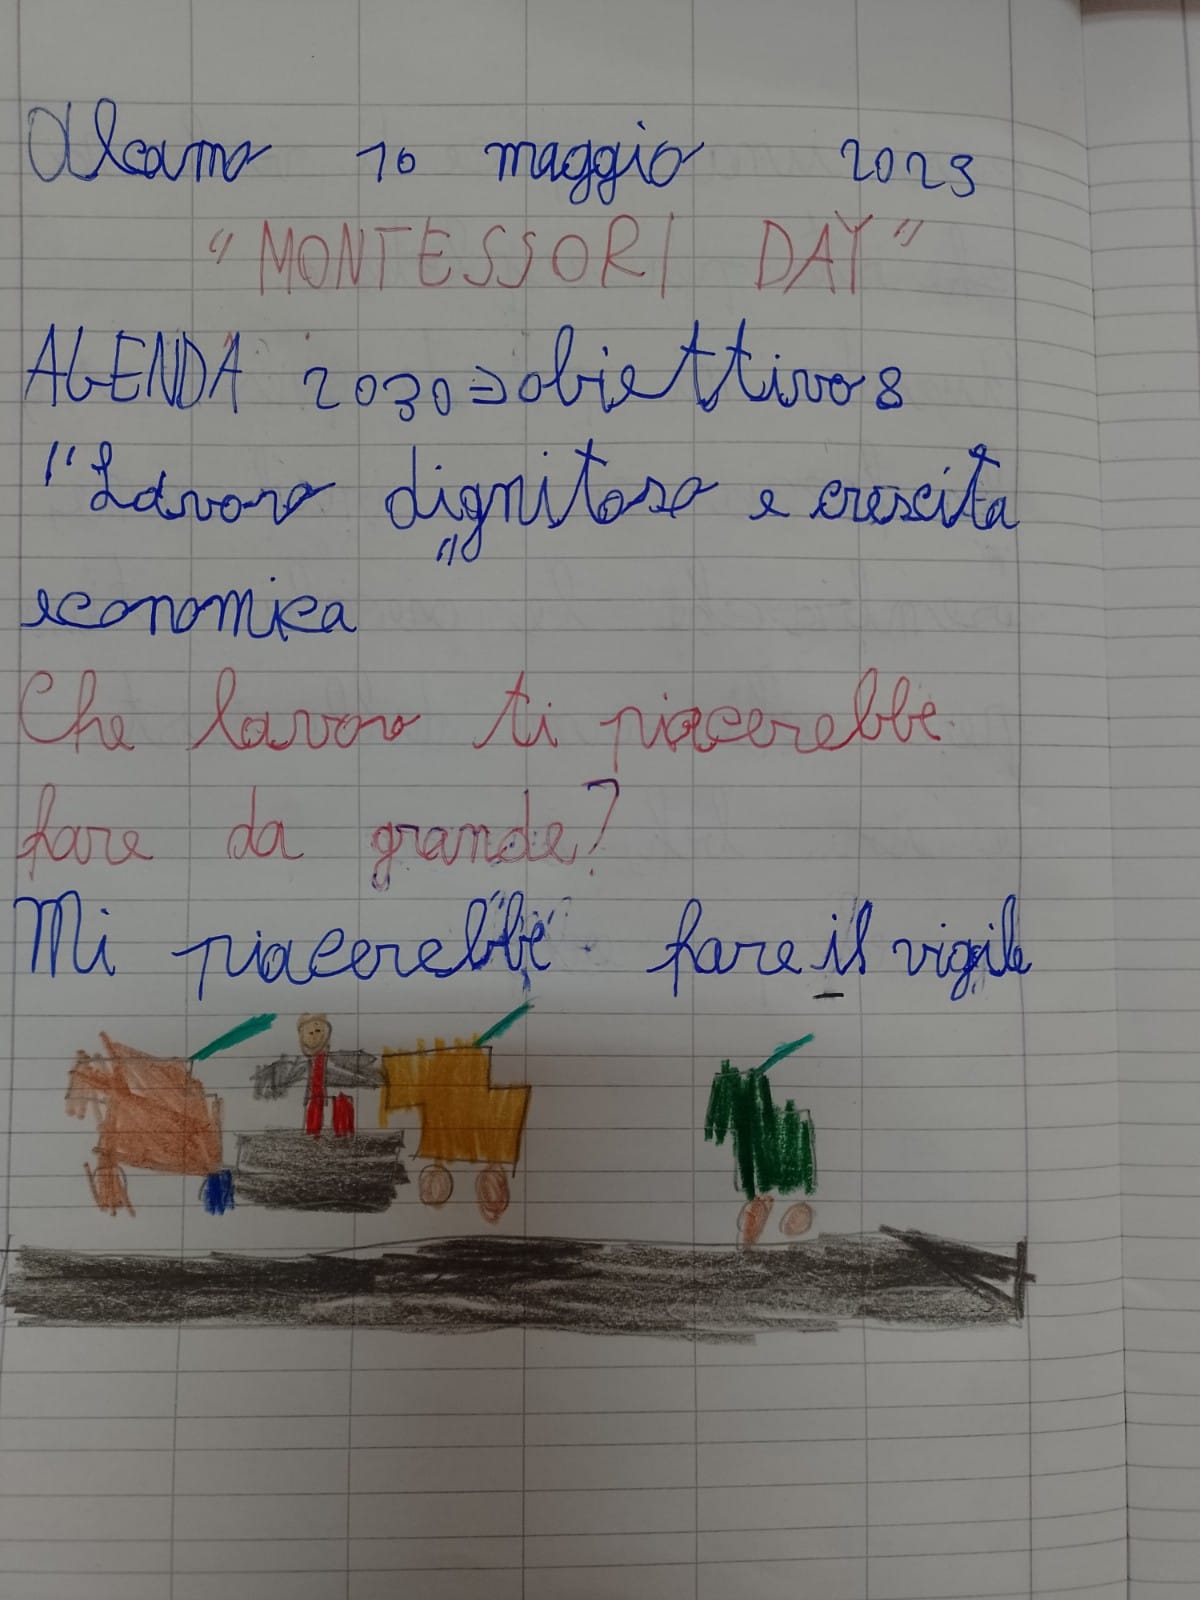 Alcamo 16 maggio 2023
"MONTESSORI DAY"
AGENDA 2030⇒obiettivo 8
"Lavoro dignitoso e crescita
economica"
Che lavoro ti piacerebbe
fare da grande?
Mi piacerebbe fare il vigile